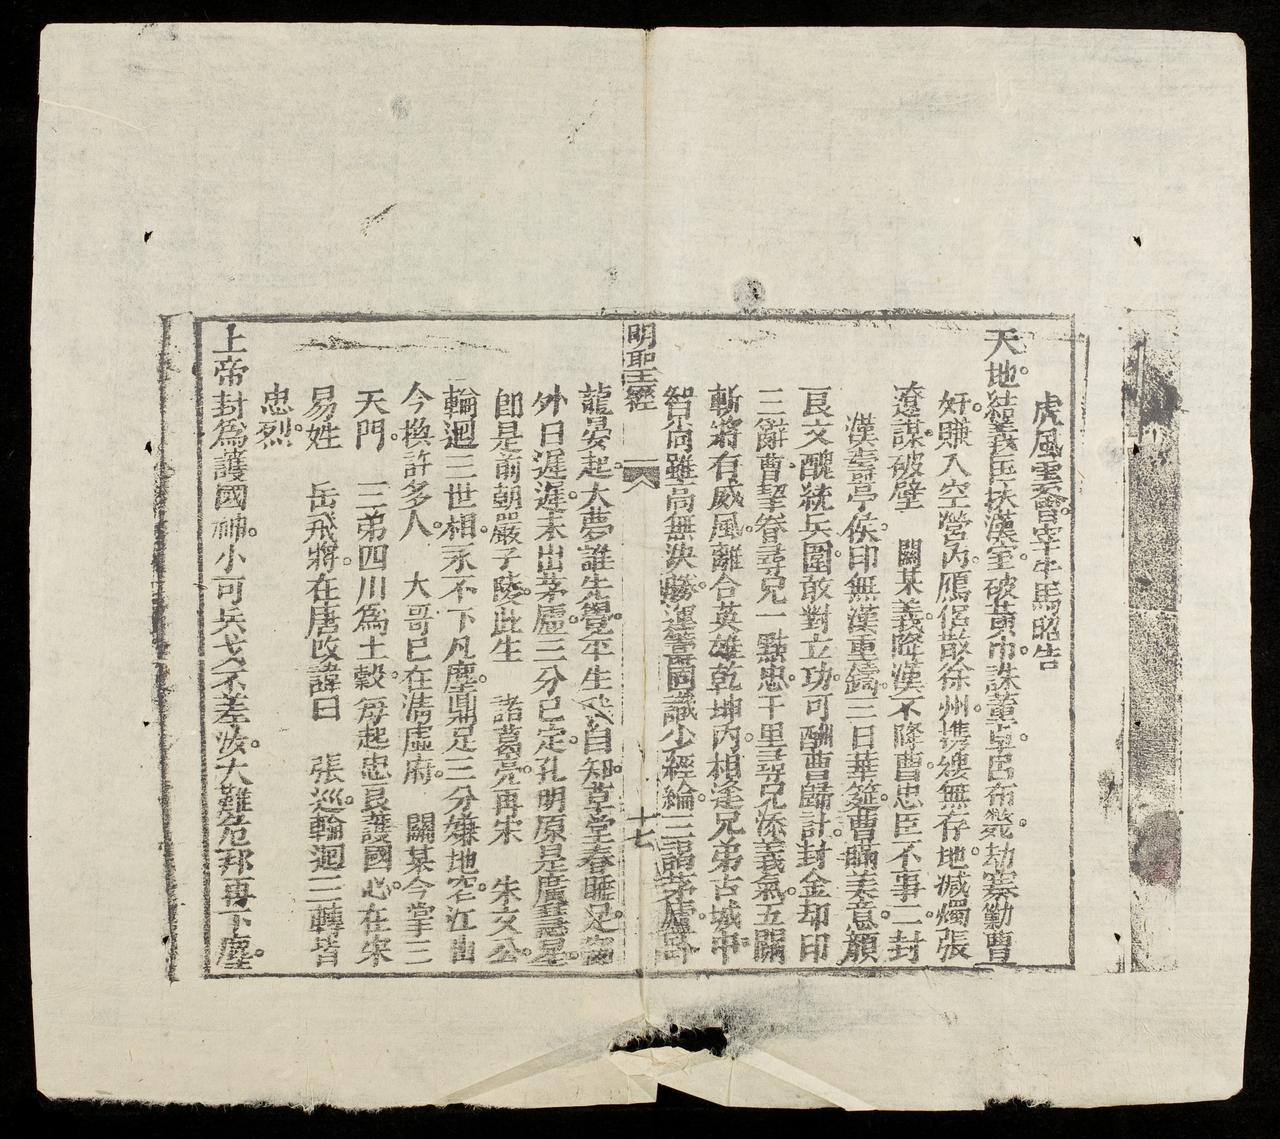 虎風雲會宰牛馬昭告
天地結義匡扶漢室。破黃巾。誅董卓。呂布斃。劫寨勦曹
奸。賺入空營內。鴈侶散徐州。雋縷無存地。滅燭張
遼謀。破壁 關某義。降漢不降曹。忠臣不事二。封
漢壽亭侯。印無漢重鑄。三日華筵。曹瞞美意。顏
良文醜統兵圍。敢對立功。可酬曹歸計。封金却印
三辭曹。望眷尋兄一點忠。千里尋兄添義氣。五關
斬將有威風。離合英雄乾坤內。相逢兄弟古城中
智尚雖高無決勝。運籌同議少經綸。三詔茅廬臥
明聖經 十七
龍晏起。大夢誰先覺。平生我自知。草堂春睡足。窗
外日遲遲。未出茅廬三分已定。孔明原是廣慧星。
卽是前朝嚴子陵。此生 諸葛亮。再宋 朱文公。
輪迴三世相。永不下凡塵。鼎足三分嫌地窄。江山
今換許多人。 大哥已在淸虛府。 關某今掌三
天門。 三弟四川爲土穀。每起忠良護國心。在宋
易姓 岳飛將。在唐改諱曰 張巡。輪迴三轉皆
忠烈。
上帝封爲護國神。小可兵戈不差汝。大難危邦再下塵。